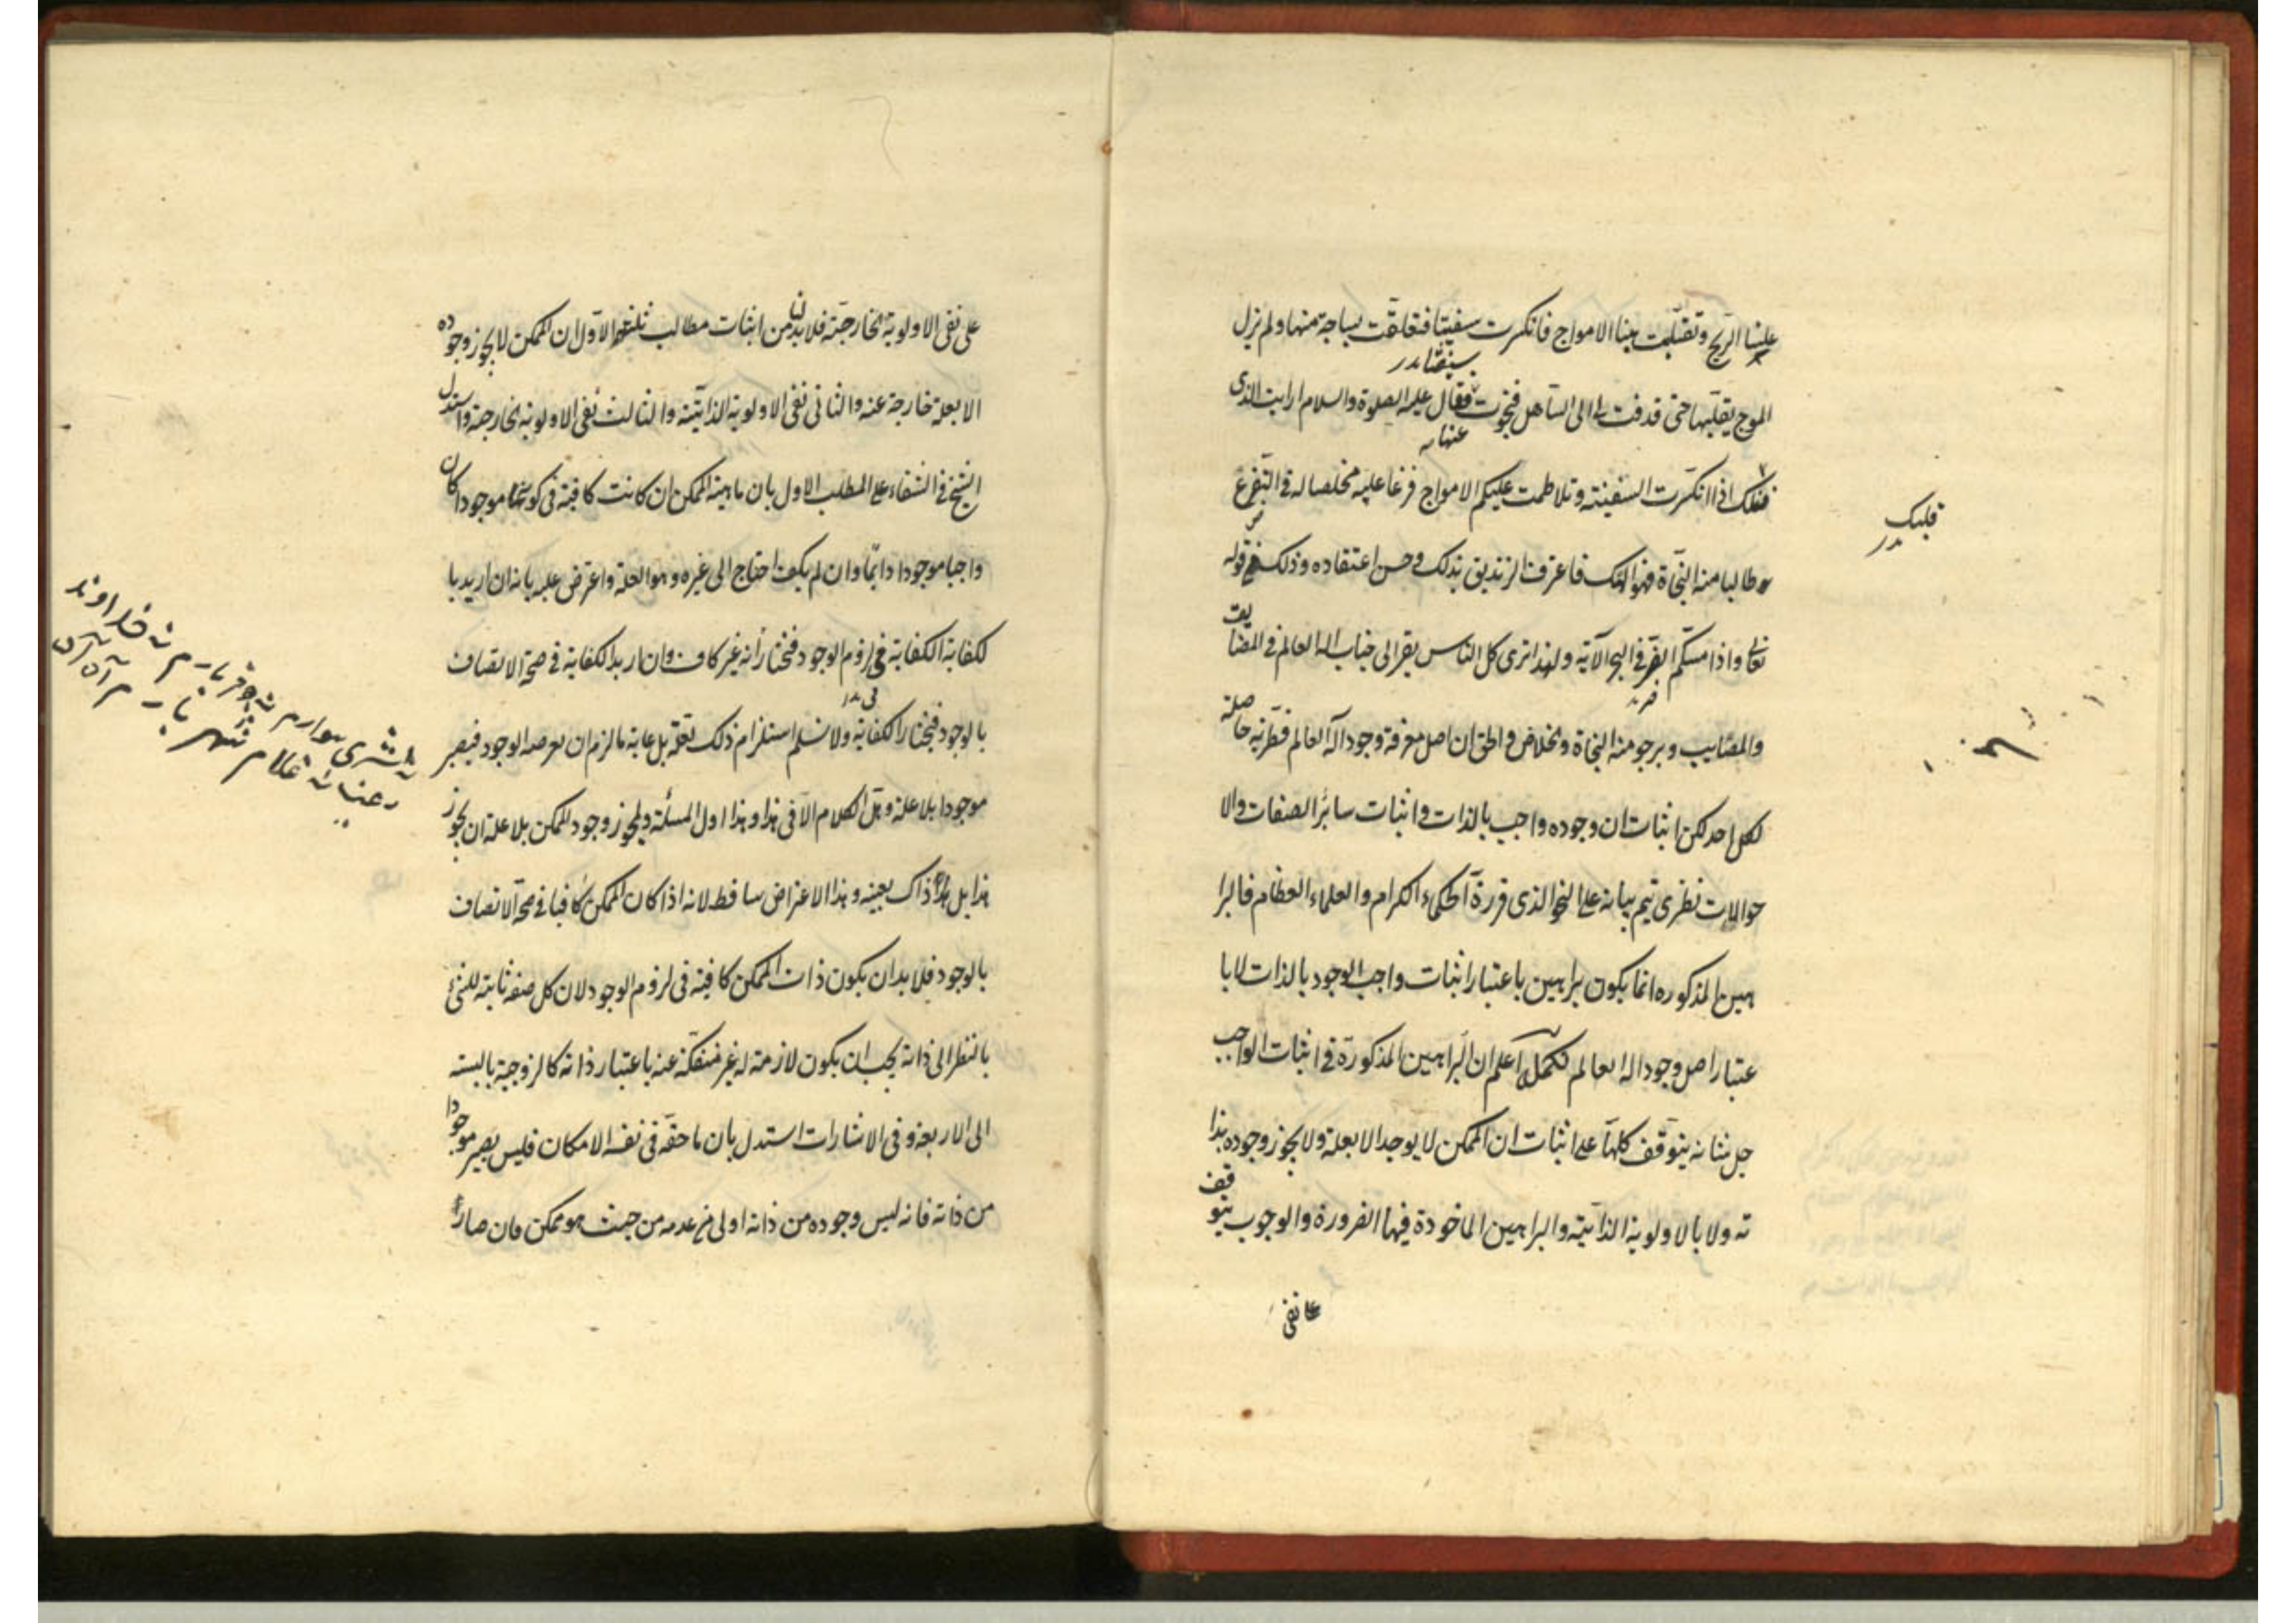 علينا الريح وتقلبت بنا الامواج فانكسرت سفينتنا فتعلقت بساجة منها ولم يزل
الموج يقلبها حتى قذفت بى الى الساحل فنجوت عنها فقال عليه الصلوة والسلام ارايت الذى
قلبك اذا انكسرت السفينة وتلاطمت عليكم الامواج فزعا عليه مخلصا له فى التضرع
طالبا منه النجاة فهو الهك فاعترف الزنديق بذلك وحسن اعتقاده وذلك فى قوله
تعالى واذا مسكم الضر فى البحر الآية ولهذا ترى كل الناس يفر الى جناب اله العالم فى المضايق
والمصايب ويرجو منه النجاة والخلاص والحق ان اصل معرفة وجود اله العالم فطرية حاصلة
لكل احد لكن اثبات ان وجوده واجب بالذات واثبات سائر الصفات والا
حوالات نظرى يتم بيانه على النحو الذى قررة الحكماء الكرام والعلماء العظام فالبرا
هين المذكوره انما يكون براهين باعتبار اثبات واجب الوجود بالذات لا با
عتبار اصل وجود اله العالم تكملة اعلم ان البراهين المذكورة فى اثبات الواجب
جل شانه يتوقف كلها على اثبات ان الممكن لا يوجد الا بعلة ولا يجوز وجوده بذا
ته ولا بالاولوية الذاتية والبراهين الماخوذة فيها الضرورة والوجوب يتوقف
على نفى
قلبك
على نفى الاولوية الخارجية فلا بد لنا من اثبات مطالب ثلثة الاول ان الممكن لا يجوز وجوده
الا بعلة خارجة عنه والثانى نفى الاولوية الذاتية والثالث نفى الاولوية الخارجية واستدل
الشيخ فى الشفاء على المطلب الاول بان ماهية الممكن ان كانت كافية فى كونها موجودا كان
واجبا موجودا دائما وان لم يكف احتاج الى غيره وهو العلة واعترض عليه بانه ان اريد با
لكفاية الكفاية فى لزوم الوجود فنختار أنه غير كاف وان اريد الكفاية فى صحة الاتصاف
بالوجود فنختار الكفاية ولا نسلم استلزام ذلك تعقله بل غاية ما لزم ان يعرضه الوجود فيصير
موجودا بلا علة وهل الكلام الا فى هذا وهذا اول المسئلة ولمجوز وجود الممكن بلا علة ان يجوز
هذا بل هذا ذاك بعينه وهذا الاعتراض ساقط لانه اذا كان الممكن كافيا فى صحة الاتصاف
بالوجود فلا بد ان يكون ذات الممكن كافية فى لزوم الوجود لان كل صفة ثابتة للشئ
بالنظر الى ذاته يجب ان يكون لازمة له غير منفكة عنه باعتبار ذاته كالزوجية بالنسبة
الى الاربعة وفى الاشارات استدل بان ما حقه فى نفسه الامكان فليس يصير موجودا
من ذاته فانه ليس وجوده من ذاته اولى من عدمه من حيث هو ممكن فان صار